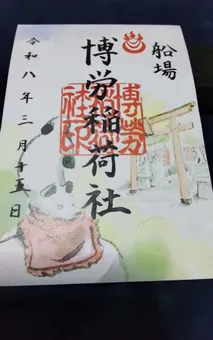 船場
博労稲荷社
令和八年三月十五日
博労
社印